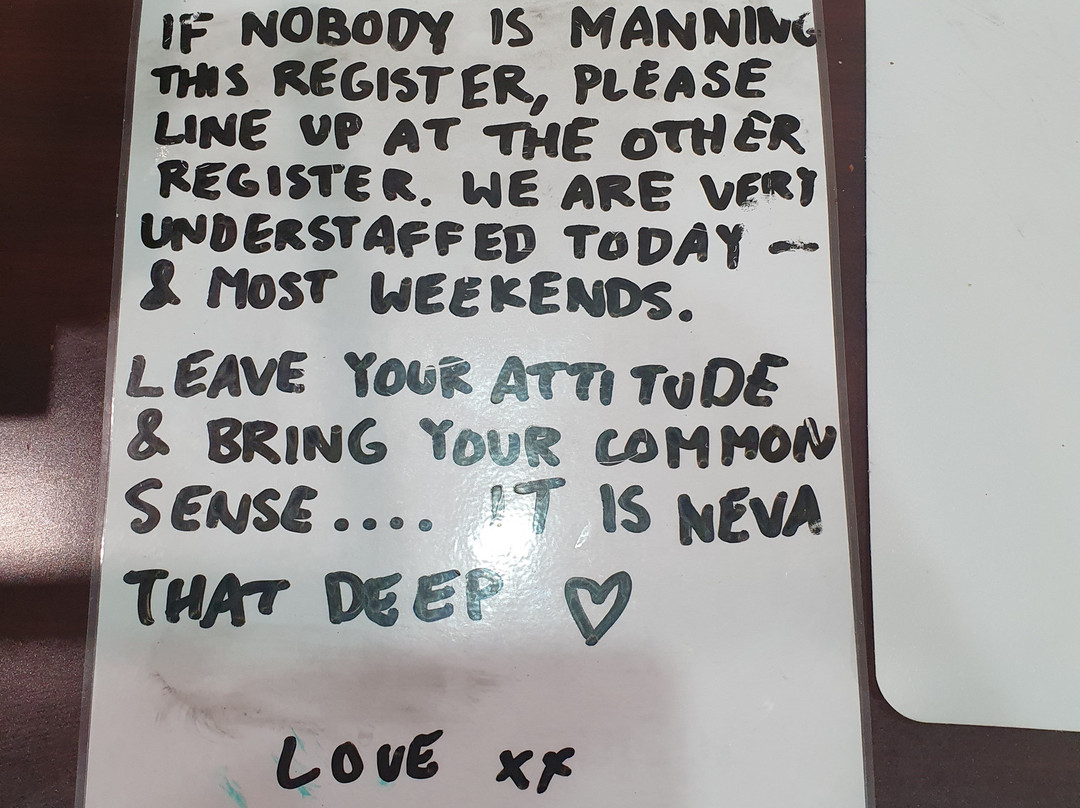 IF NOBODY IS MANNING
THIS REGISTER, PLEASE
LINE UP AT THE OTHER
REGISTER. WE ARE VERY
UNDERSTAFFED TODAY —
& MOST WEEKENDS.
LEAVE YOUR ATTITUDE
& BRING YOUR COMMON
SENSE.... IT IS NEVA
THAT DEEP ♡
LOVE xx